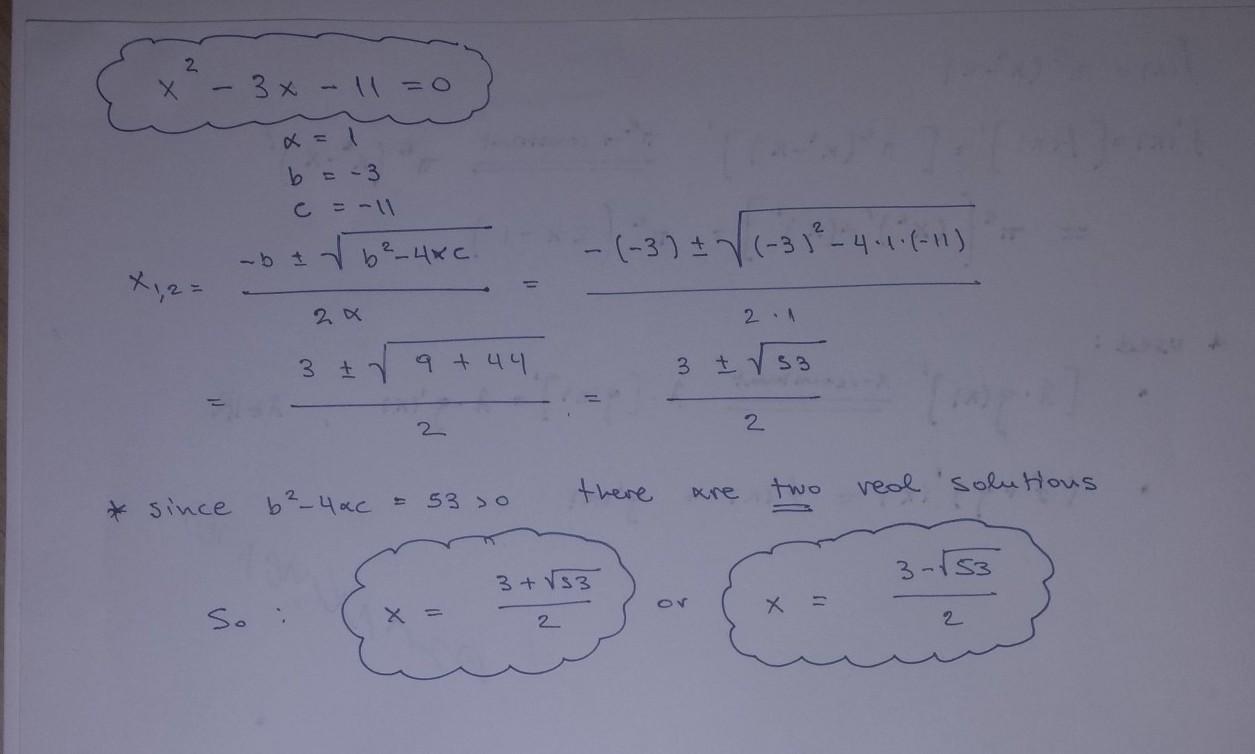 x² - 3x - 11 = 0
α = 1
b = -3
c = -11
x₁,₂ = (-b ± √(b² - 4αc)) / (2α) = (-(-3) ± √((-3)² - 4·1·(-11))) / (2·1)
= (3 ± √(9 + 44)) / 2 = (3 ± √53) / 2
* since b² - 4αc = 53 > 0 there are two real solutions
So : x = (3 + √53) / 2 or x = (3 - √53) / 2